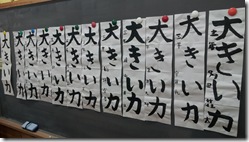 大きい力
大きい力
大きい力
大きい力
大きい力
大きい力
大きい力
大きい力
大きい力
大きい力
大きい力